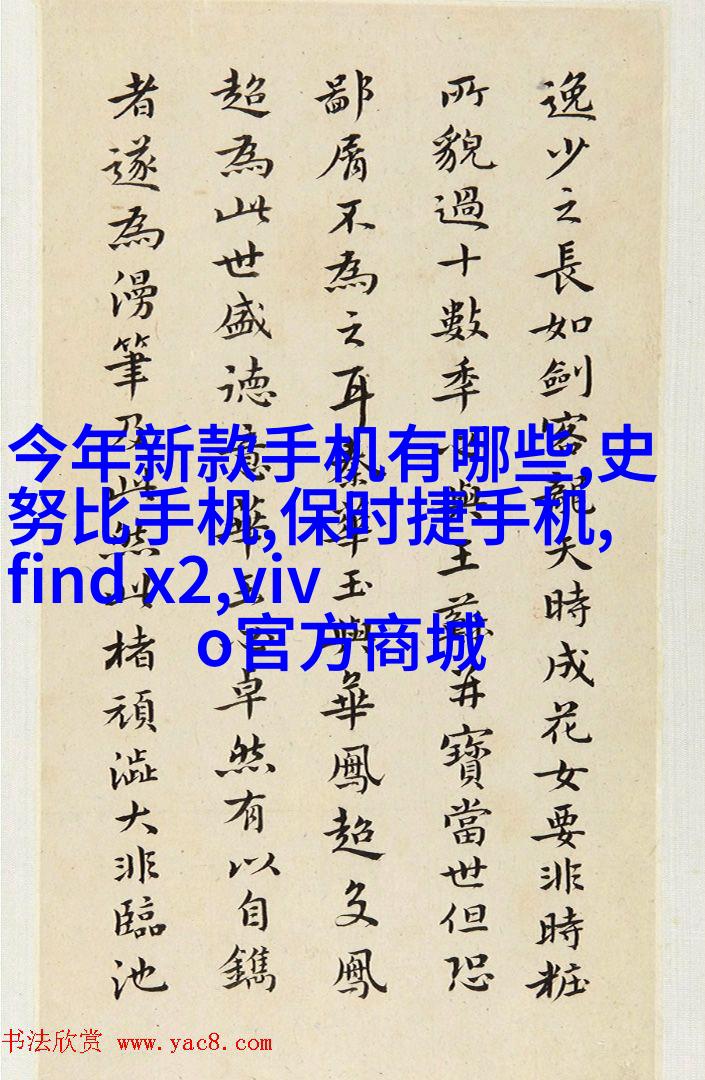 逸少之長如劍客天時成花女要非時粧
所貌過十數季與王并寶當世但恐
鄙屑不為之耳華玉與華鳳超文鳳
超為此世盛德意華玉卓然有以自鐫
者遂為漫筆及此然此楮頑澁大非臨池
今年新款手机有哪些,史
努比手机,保时捷手机,
find x2,viv
o官方商城
书法欣赏 www.yac8.com